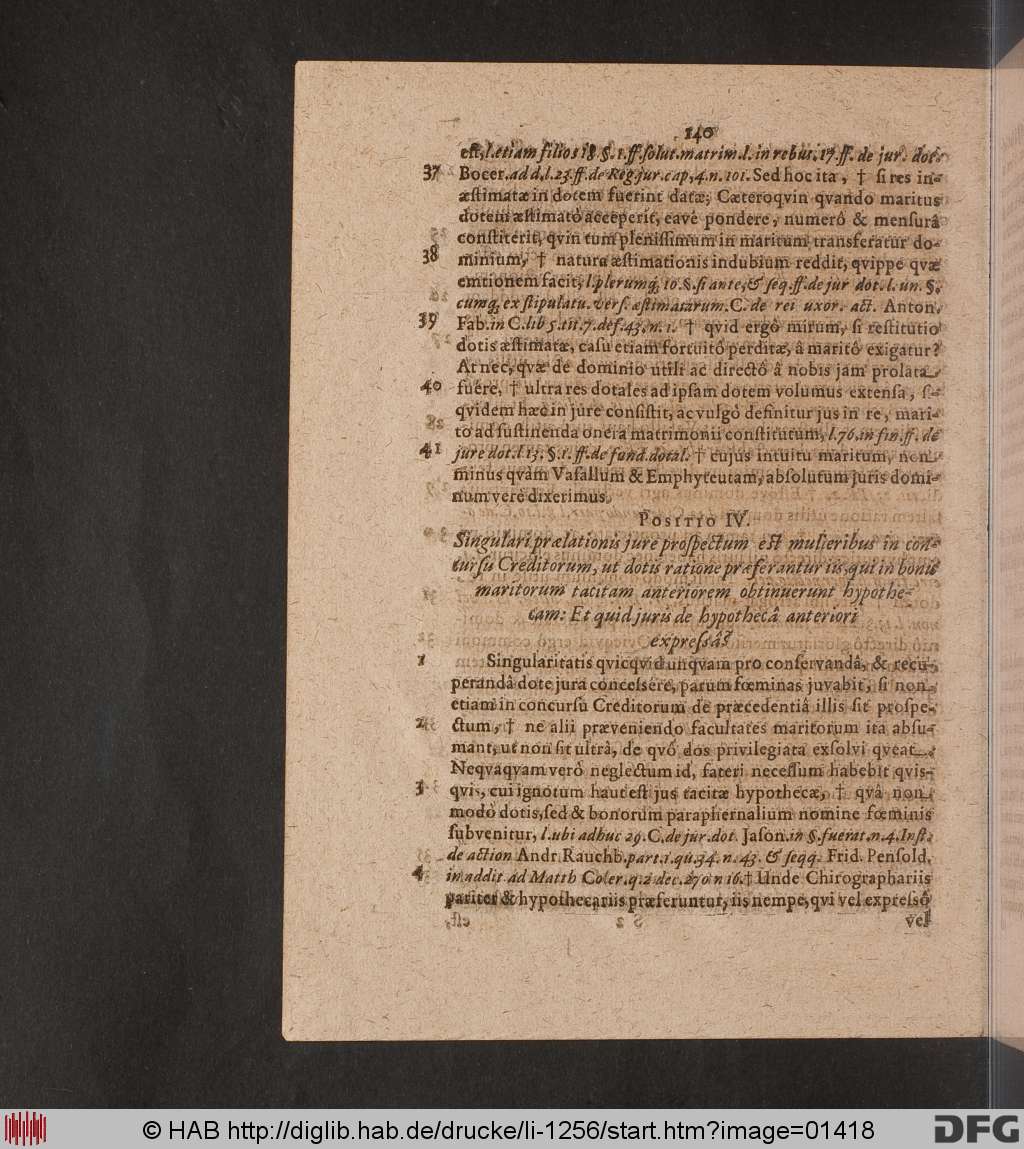 140
est, l. etiam filios 18. §. 1. ff. solut. matrim. l. in rebus. 17. ff. de jur. dot.
37 Bocer. ad d. l. 23. ff. de Reg. jur. cap. 4. n. 101. Sed hoc ita, † si res in-
æstimatæ in dotem fuerint datæ; Cæteroqvin qvando maritus
dotem æstimatò acceperit, eavè pondere, numerô & mensurâ
constiterit, qvin tum plenissimum in maritum transferatur do-
38 minium, † natura æstimationis indubium reddit, qvippe qvæ
emtionem facit, l. plerumq; 10. §. si ante, & seq. ff. de jur dot. l. un. §.
cumq; ex stipulatu. vers. æstimatarum. C. de rei uxor. act. Anton.
39 Fab. in C. lib 5. tit. 7. def. 43. n. 1. † qvid ergô mirum, si restitutio
dotis æstimatæ, casu etiam fortuitô perditæ, â maritô exigatur?
At nec, qvæ de dominio utili ac directô â nobis jam prolata
40 fuere, † ultra res dotales ad ipsam dotem volumus extensa, si-
qvidem hæc in jure consistit, ac vulgò definitur jus in re, mari-
to ad sustinenda onera matrimonii constitutum, l. 76. in fin. ff. de
41 jure dot. l 13. §. 1. ff. de fund. dotal. † cujus intuitu maritum, non
minus qvàm Vasallum & Emphyteutam, absolutum juris domi-
num verè dixerimus.
POSITIO IV.
Singulari prælationis jure prospectum est mulieribus in con-
cursu Creditorum, ut dotis ratione præferantur iis, qui in bonis
maritorum tacitam anteriorem obtinuerunt hypothe-
cam: Et quid juris de hypothecâ anteriori
expressâ?
1 Singularitatis qvicqvid unqvam pro conservandâ, & recu-
perandâ dote jura concessere, parum fœminas juvabit, si non
etiam in concursu Creditorum de præcedentiâ illis sit prospe-
2 ctum, † ne alii præveniendo facultates maritorum ita absu-
mant, ut non sit ultrà, de qvô dos privilegiata exsolvi qveat.
Neqvaqvam verò neglectum id, fateri necessum habebit qvis-
3 qvis, cui ignotum haut est jus tacitæ hypothecæ, † qvâ non
modò dotis, sed & bonorum paraphernalium nomine fœminis
subvenitur, l. ubi adhuc 29. C. de jur. dot. Jason. in §. fuerat. n. 4. Inst.
de action Andr. Rauchb. part. 1. qu. 34. n. 43. & seqq. Frid. Pensold.
4 in addit ad Matth Coler. q. 2 dec. 270 n 16. † Unde Chirographariis
pariter & hypothecariis præferuntur, iis nempe, qvi vel expressô
vel
© HAB http://diglib.hab.de/drucke/li-1256/start.htm?image=01418
DFG